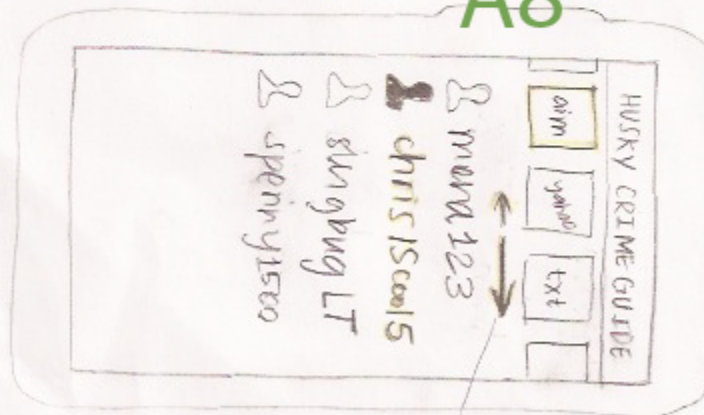 A8
HUSKY CRIME GUIDE
aim yahoo txt
mona123
chrisIScool5
slugbug LT
spenny1500